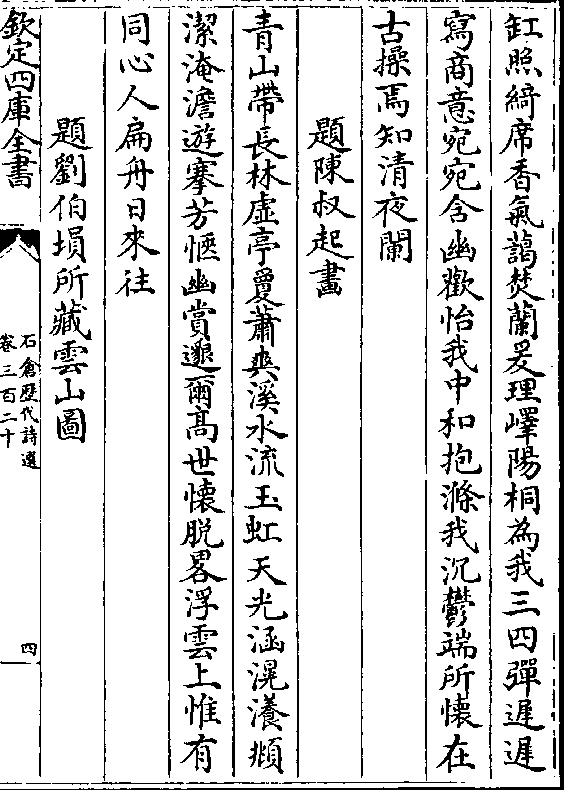 缸照綺席香氣藹焚蘭爰理嶧陽桐為我三四彈遲遲
寫商意宛宛含幽歡怡我中和抱滌我沉鬱端所懷在
古操焉知清夜闌
題陳叔起畫
青山帶長林虛亭敻蕭爽溪水流玉虹天光涵滉瀁頫
潔淹澹遊搴芳愜幽賞邈爾高世懷脱畧浮雲上惟有
同心人扁舟日來往
題劉伯塤所藏雲山圖
欽定四庫全書
石倉歷代詩選
卷三百二十
四